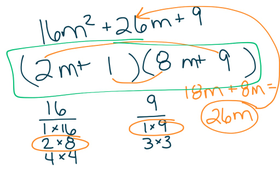 16m² + 26m + 9
(2m + 1)(8m + 9)
18m + 8m =
26m
16
1 x 16
2 x 8
4 x 4
9
1 x 9
3 x 3